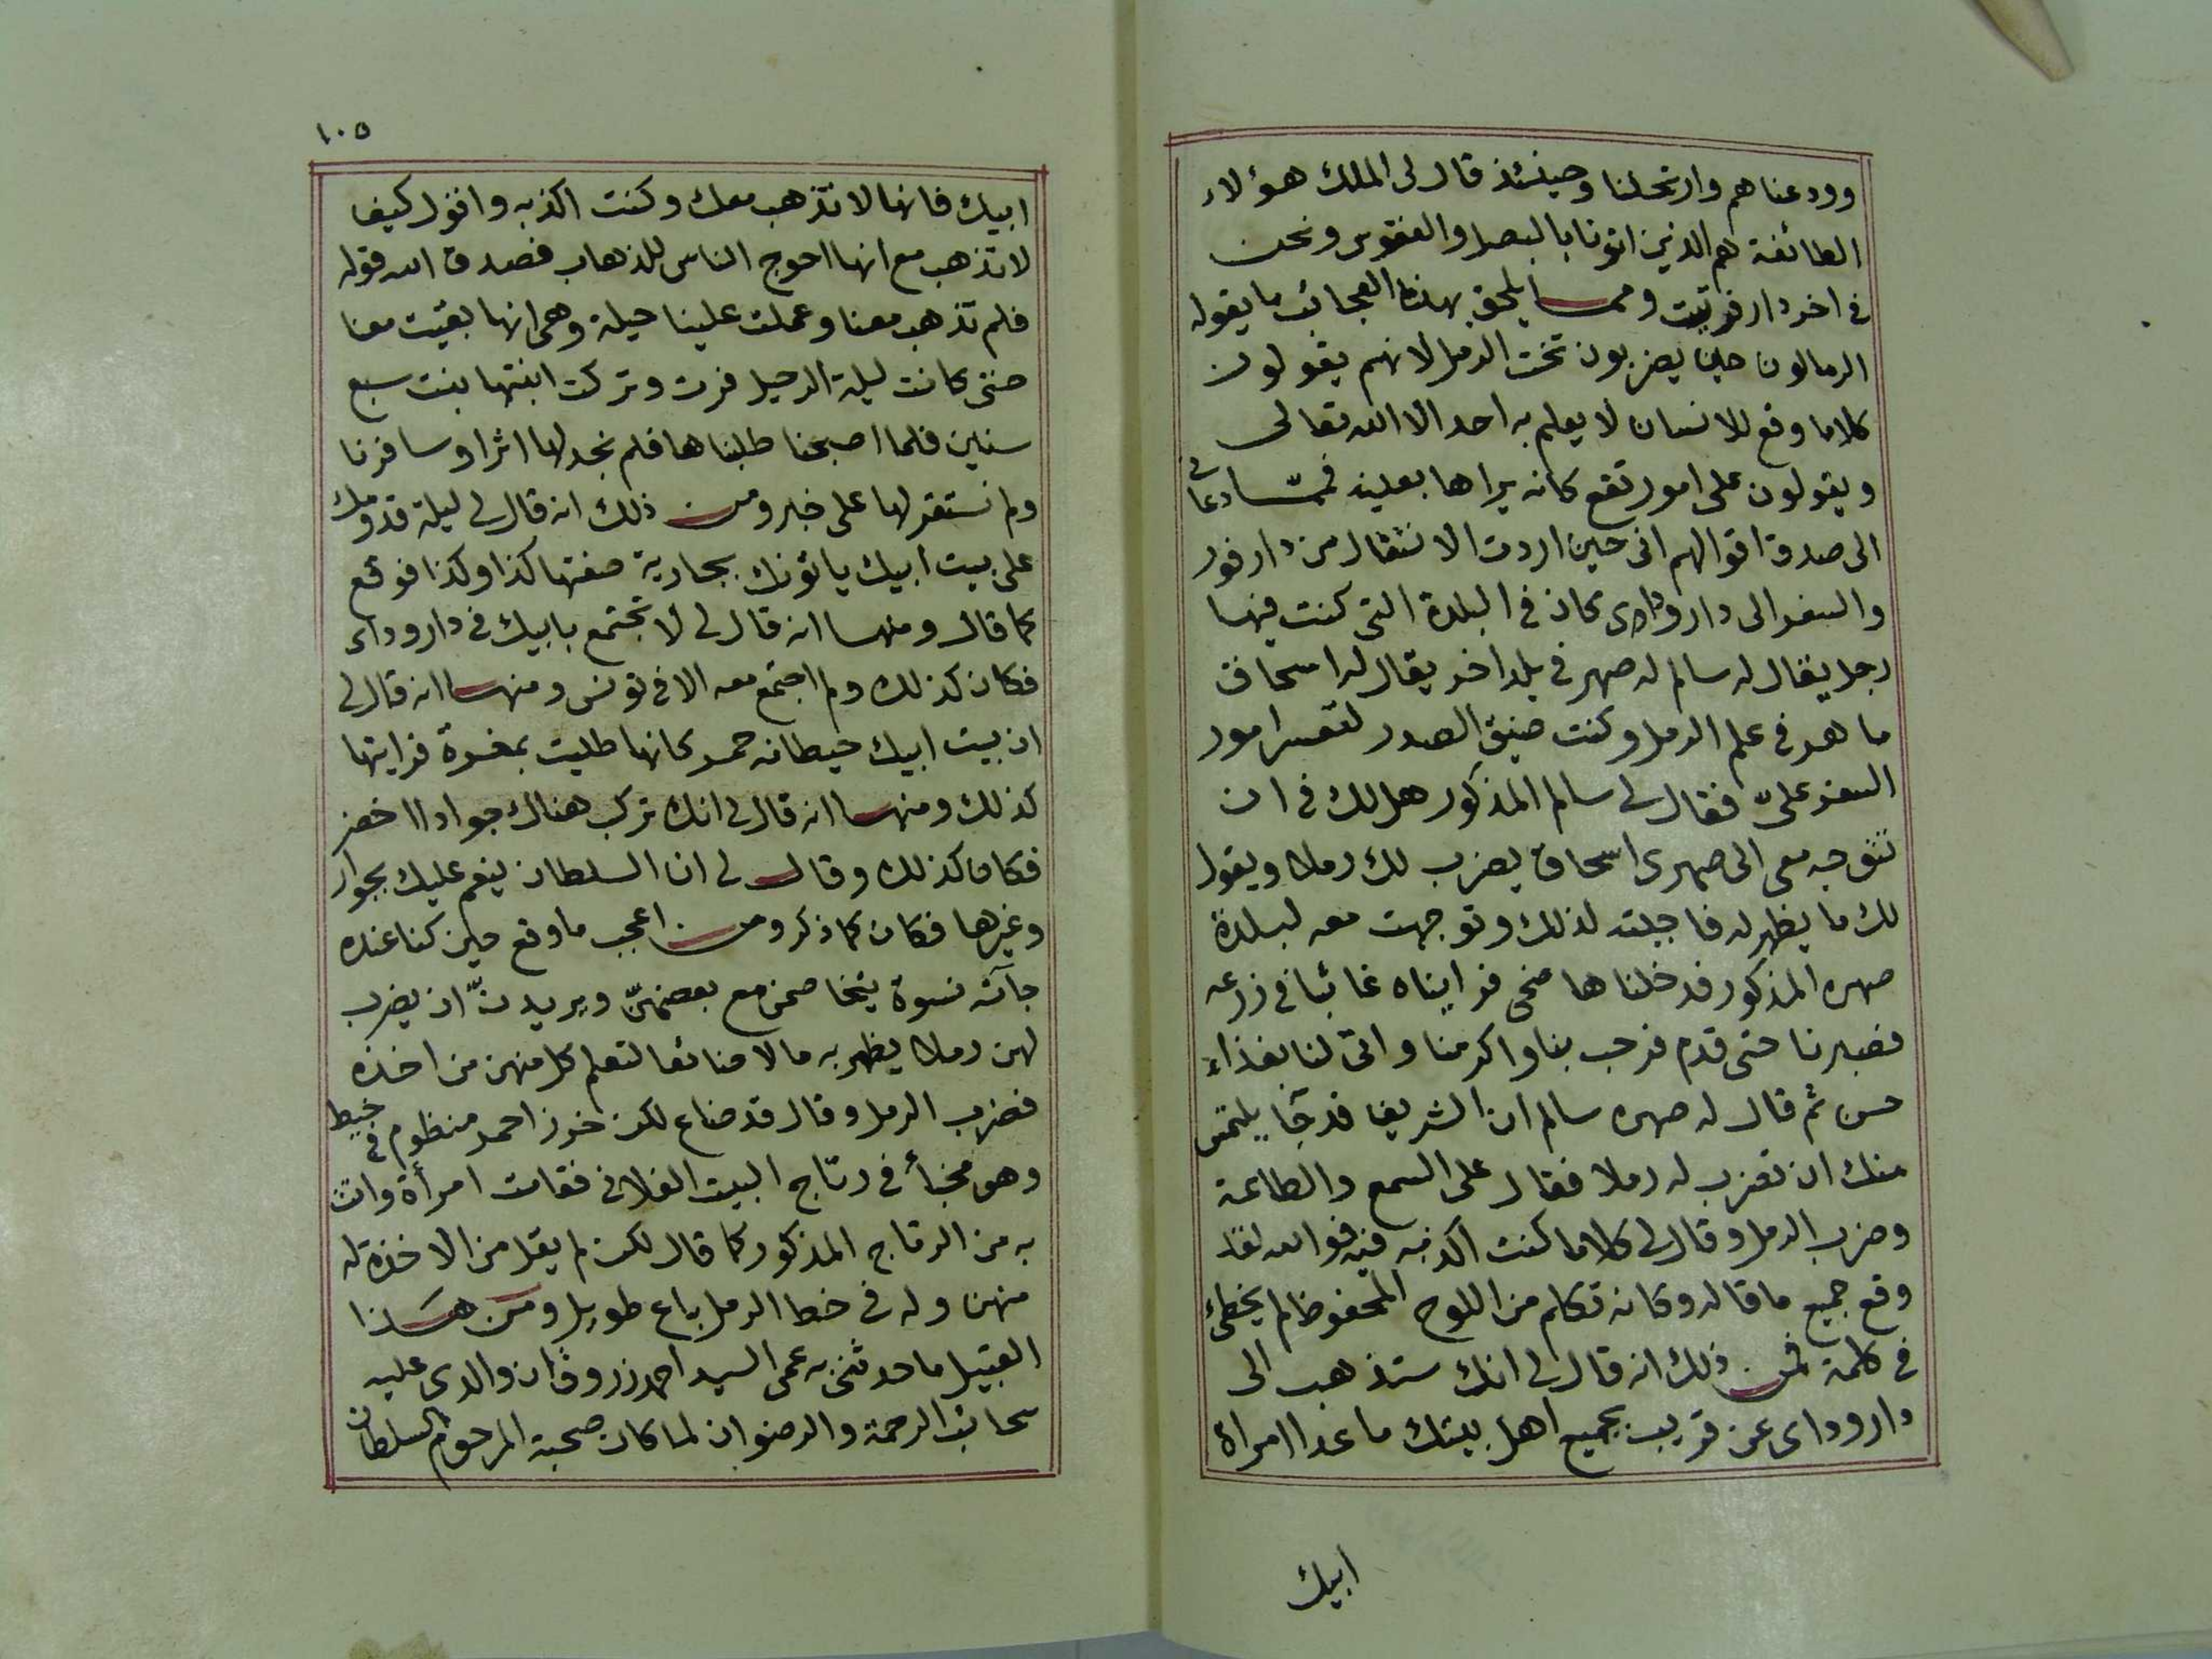 وودعناهم وارتحلنا وحينئذ قال لى الملك هؤلاء
الطائفة هم الذين اتونا بالبصل والفقوس ونحن
فى اخر دار فرتيت ومما يلحق بهذا العجائب ما يقوله
الرمالون حين يضربون تخت الرمل لانهم يقولون
كلاما وقع للانسان لا يعلم به احد الا الله تعالى
ويقولون على امور تقع كانه يراها بعينه فمما دعانى
الى صدق اقوالهم انى حين اردت الانتقال من دارفور
والسفر الى دار وداى كان فى البلدة التى كنت فيها
رجل يقال له سالم له صهر فى بلد اخر يقال له اسحاق
ماهر فى علم الرمل وكنت ضيق الصدر لتعسر امور
السفر علىّ فقال لى سالم المذكور هل لك فى ان
تتوجه معى الى صهرى اسحاق يضرب لك رملا ويقول
لك ما يظهر له فاجبته لذلك وتوجهت معه لبلدة
صهره المذكور فدخلناها ضحى فرايناه غائبا فى زرعه
فصبرنا حتى قدم فرحب بنا واكرمنا واتى لنا بغذاء
حسن ثم قال له صهره سالم ان الشريف قد جآ يلتمس
منك ان تضرب له رملا فقال على السمع والطاعة
وضرب الرمل وقال لى كلاما كنت اكذبه فيه فوالله لقد
وقع جميع ما قاله وكانه تكلم من اللوح المحفوظ لم يخطئ
فى كلمة فمن ذلك انه قال لى انك ستذهب الى
دار وداى عن قريب بجميع اهل بيتك ما عدا امراة
ابيك
١٠٥
ابيك فانها لا تذهب معك وكنت اكذبه واقول كيف
لا تذهب مع انها احوج الناس للذهاب فصدق الله قوله
فلم تذهب معنا وعملت علينا حيلة وهى انها بقيت معنا
حتى كانت ليلة الرحيل فرت وتركت ابنتها بنت سبع
سنين فلما اصبحنا طلبناها فلم نجد لها اثرا وسافرنا
ولم نستقر لها على خبر ومن ذلك انه قال لى ليلة قدومك
على بيت ابيك ياتونك بجارية صفتها كذا وكذا فوقع
كما قال ومنها انه قال لى لا تجتمع بابيك فى دار وداى
فكان كذلك ولم اجتمع معه الا فى تونس ومنها انه قال لى
ان بيت ابيك حيطانه حمر كانها طليت بمغرة فرايتها
كذلك ومنها انه قال لى انك تركب هناك جوادا اخضر
فكان كذلك وقال لى ان السلطان ينعم عليك بجوار
وغيرها فكان كما ذكر ومن اعجب ما وقع حين كنا عنده
جآته نسوة يتخاصمن مع بعضهنّ ويريدنّ ان يضرب
لهن رملا يظهر به مالا ضائعا لتعلم كل منهن من اخذه
فضرب الرمل وقال قد ضاع لكن خرز احمر منظوم فى خيط
وهو مخبأ فى رتاج البيت الفلانى فقامت امرأة واتت
به من الرتاج المذكور كما قال لكن لم يقل من الاخذة له
منهن وله فى خط الرمل باع طويل ومن هذا
القبيل ما حدثنى به عمى السيد احمد زروق ان والدى عليه
سحائب الرحمة والرضوان لما كان صحبة المرحوم السلطان